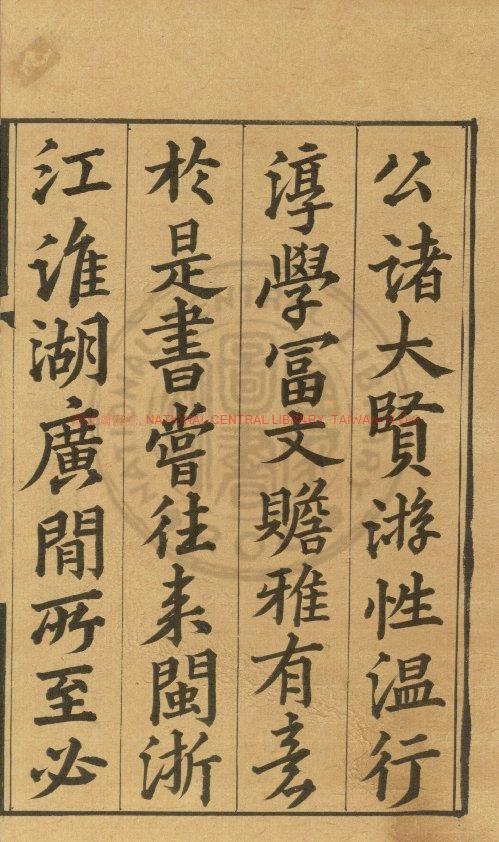 公諸大賢游性温行
淳學冨文贍雅有意
於是書嘗往來閩浙
江淮湖廣閒所至必
NATIONAL CENTRAL LIBRARY, TAIWAN